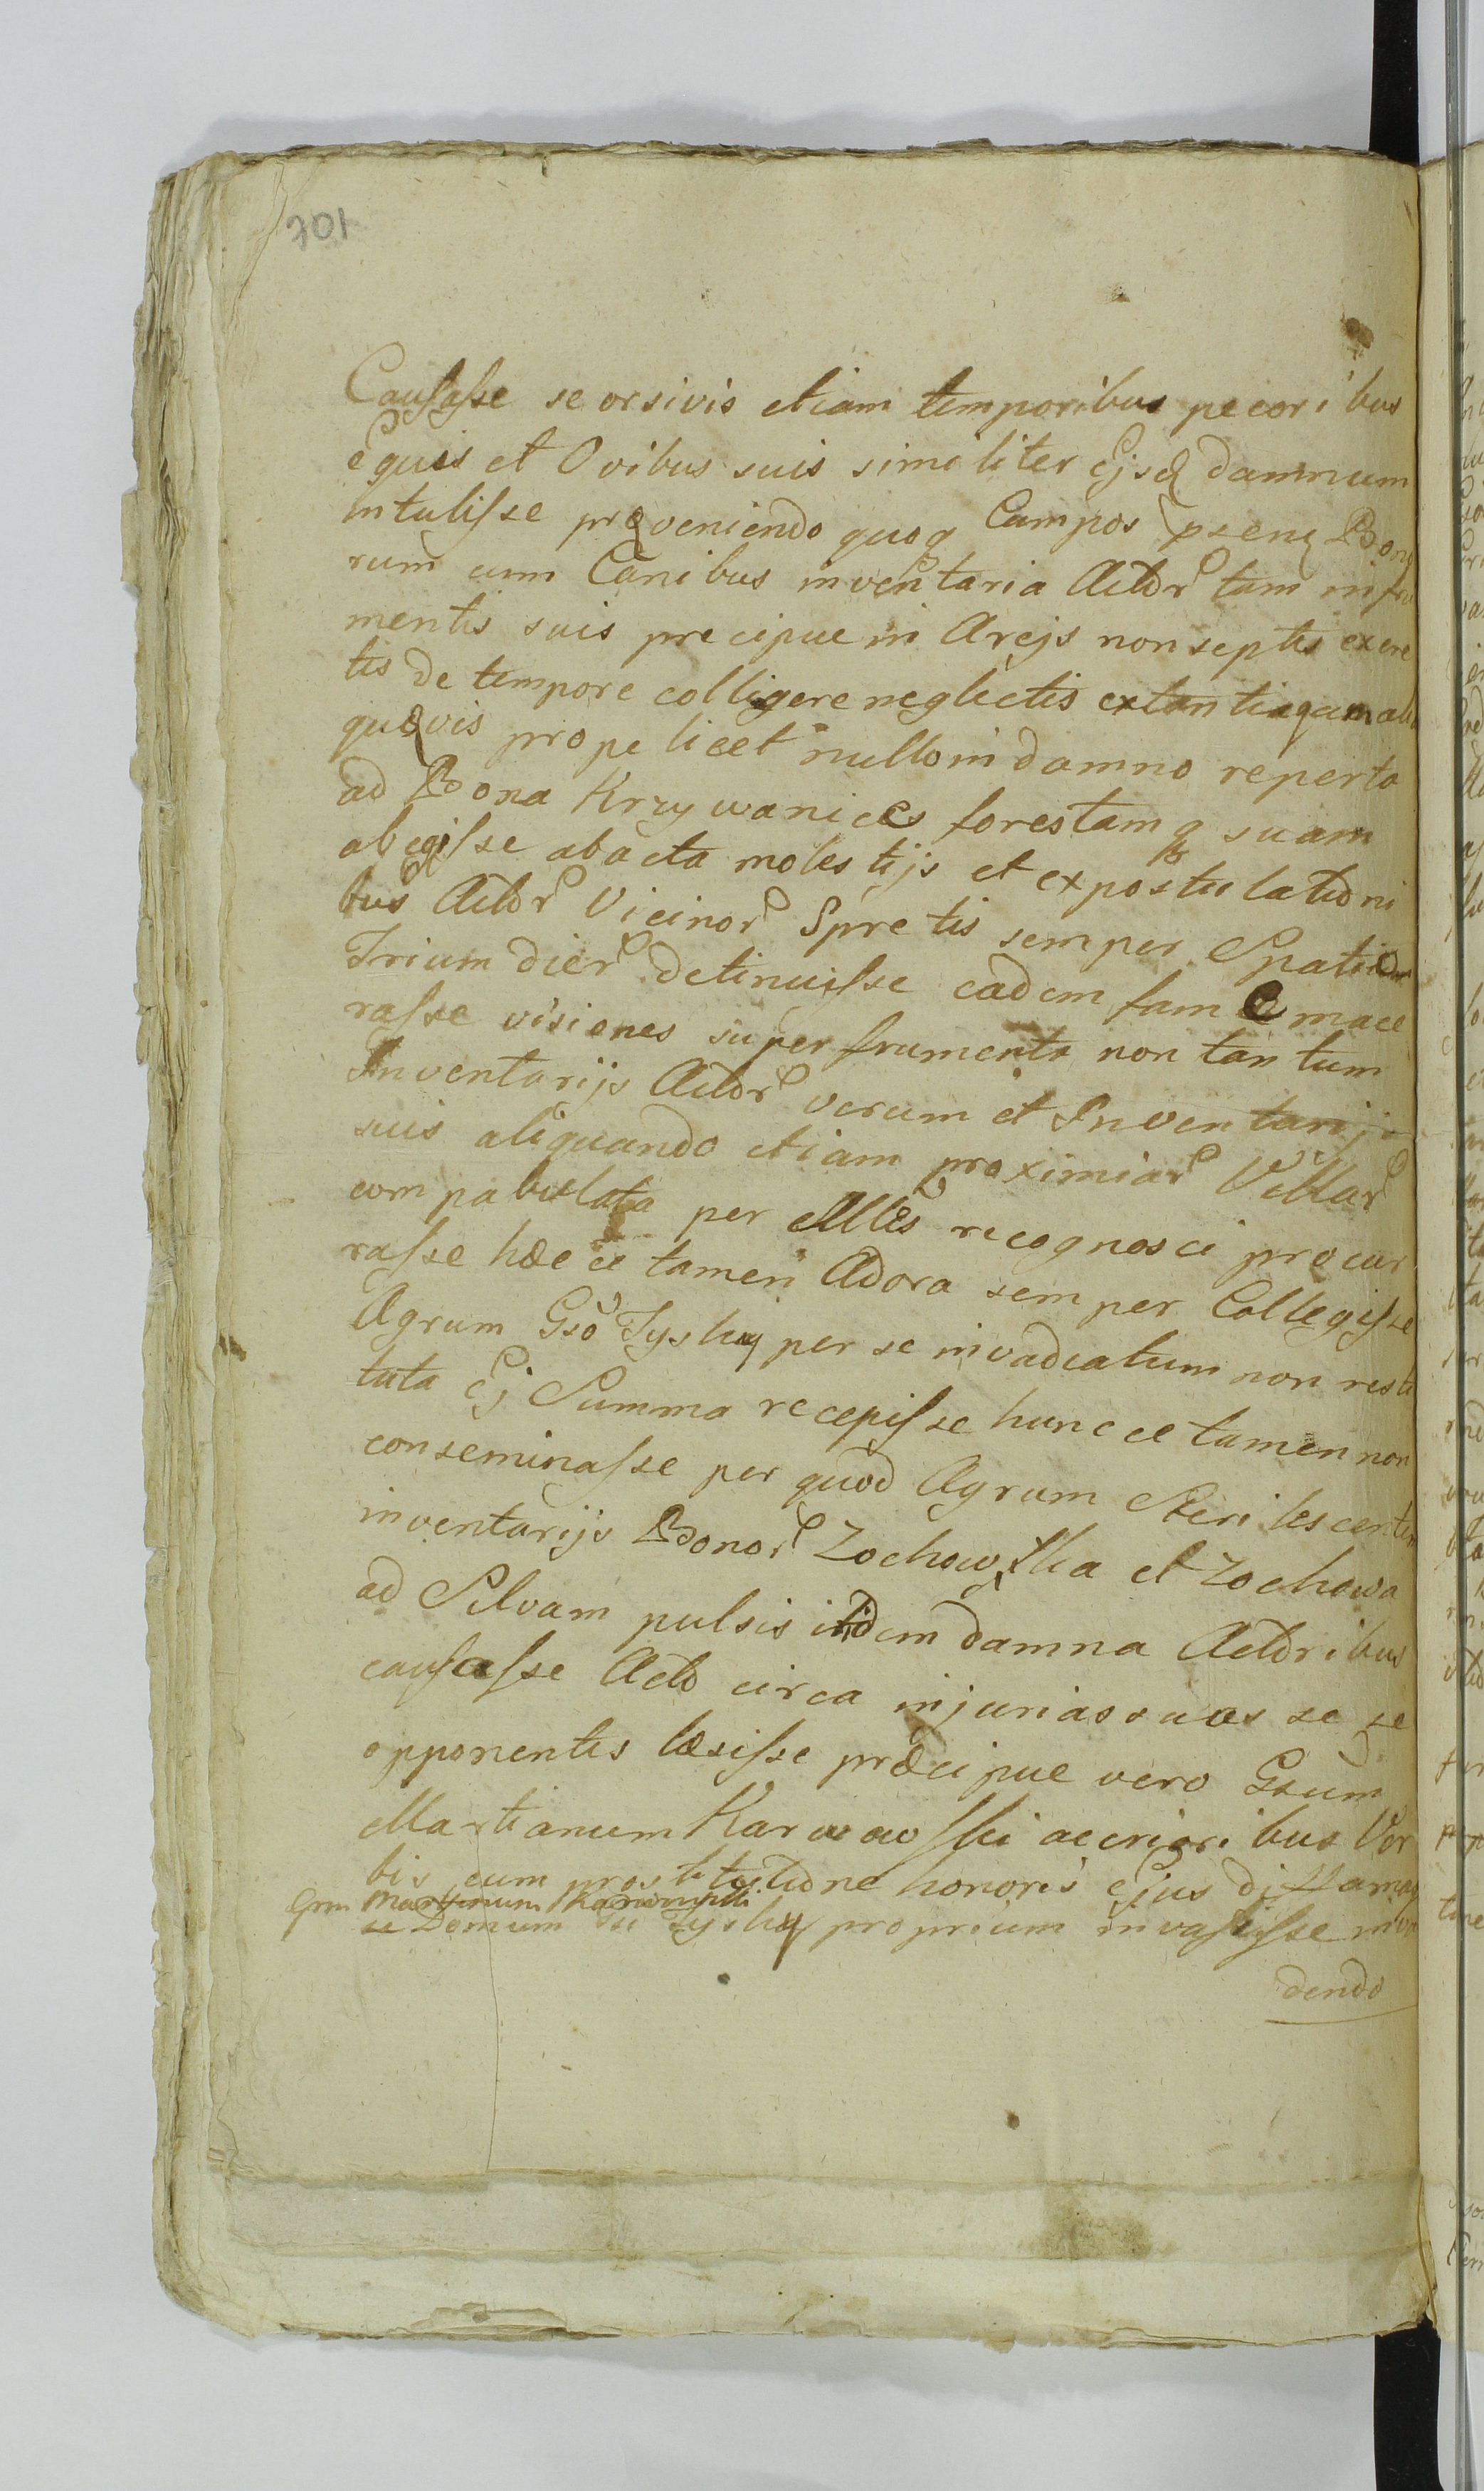 701
Causaſse se orsivis etiam temporibus pecoribus
equis et Ovibus suis similiter Ejsd damnum
intuliſse proveniendo quoq Campos pseng Bono
rum cum Canibus inventaria Actor tam in fru
mentis suis precipue in Arejs non septis excre
tis de tempore colligere neglectis extantia quam alia
quævis prope licet nullo in damno reperta
ad Bona Krzywanices forestamq suam
abegiſse abacta molestijs et expostulationi
bus Actor Vicinor Spretis semper Spatio
Trium dier detinuiſse eadem fame mace
raſse visiones super frumenta non tantum
Inventarijs Actor verum et Inventarijs
suis aliquando etiam proximiar Villar
compabulata per Mtles recognosci procur
raſse hæc ce tamen Adora semper Collegiſse
Agrum Gso Tyshy per se invadiatum non resti
tuta Ej Summa recepiſse hunc ce tamen non
conseminaſse per quod Agrum Sterilescentem
inventarijs Bonor Zochowſka et Zochowa
ad Silvam pulsis itidem damna Actoribus
cauſaſse Acto circa injurias suas se se
opponentes læsiſse præcipue vero Gsum
Martianum Karwowſki acrioribus Ver
bis cum prostitutione honoris ejus diffamaſ
Grm Martinum Karwowſki
se Domum Gsi Tyshy proprium invaſiſse inva
dendo